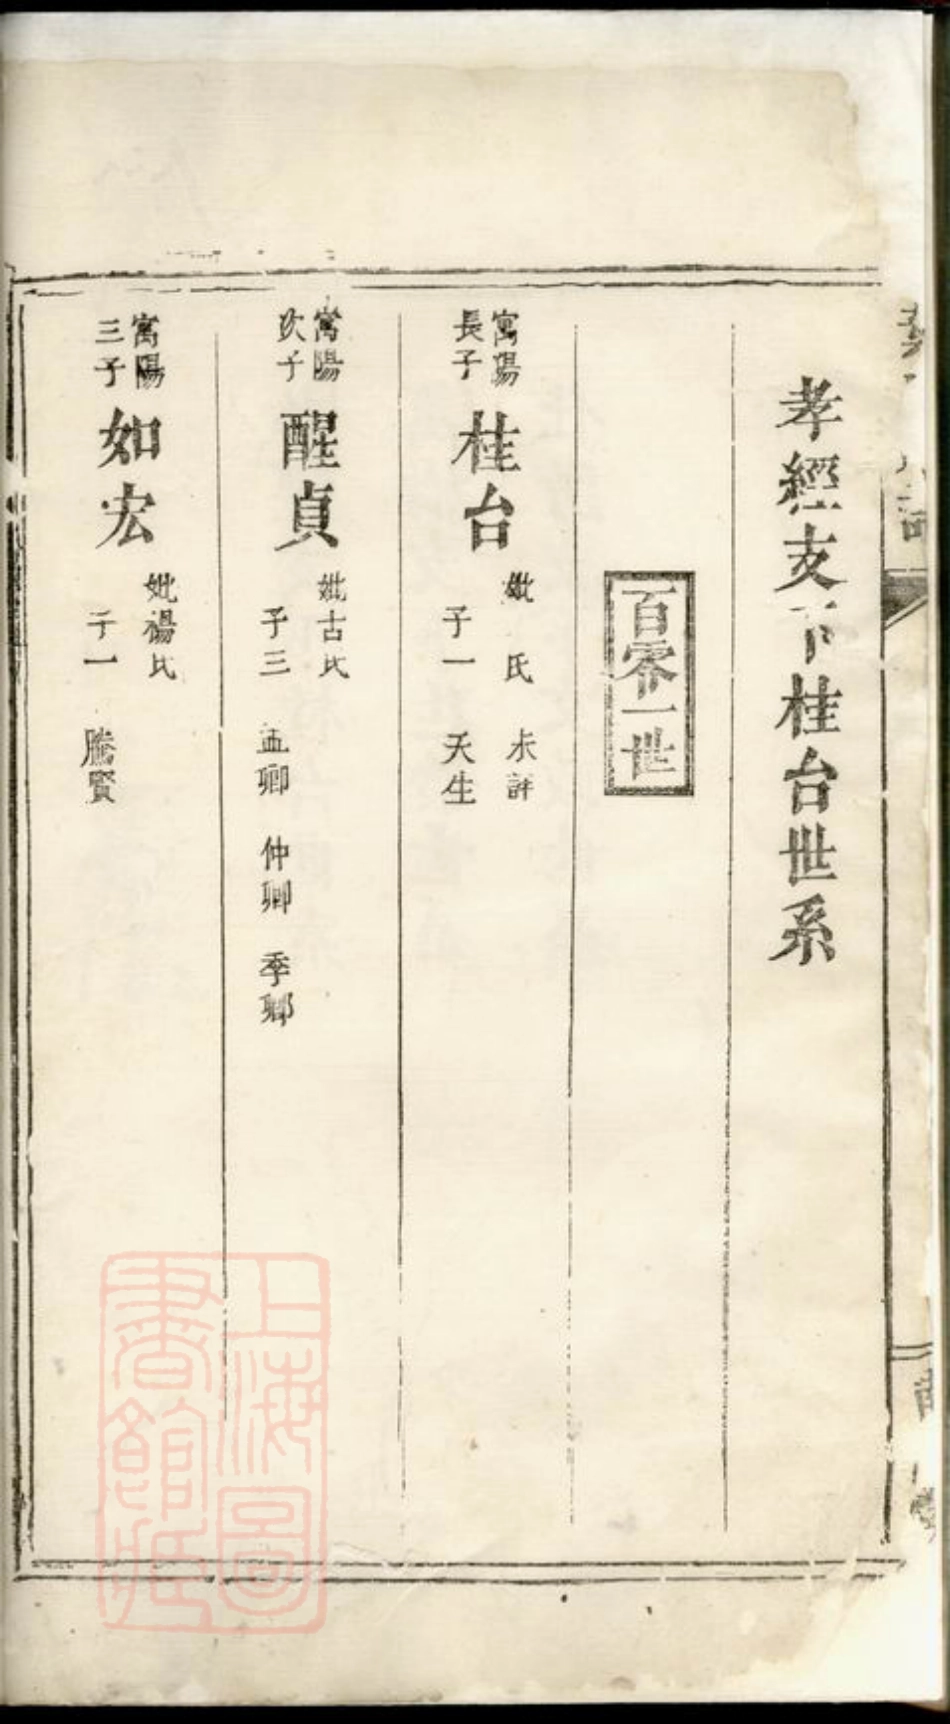 孝經支下桂台世系
百零一世
寓陽長子 桂台 妣 氏 未詳
子一 天生
寓陽次子 醒貞 妣古氏
子三 孟卿 仲卿 季卿
寓陽三子 如宏 妣楊氏
子一 騰賢
上海圖書館藏